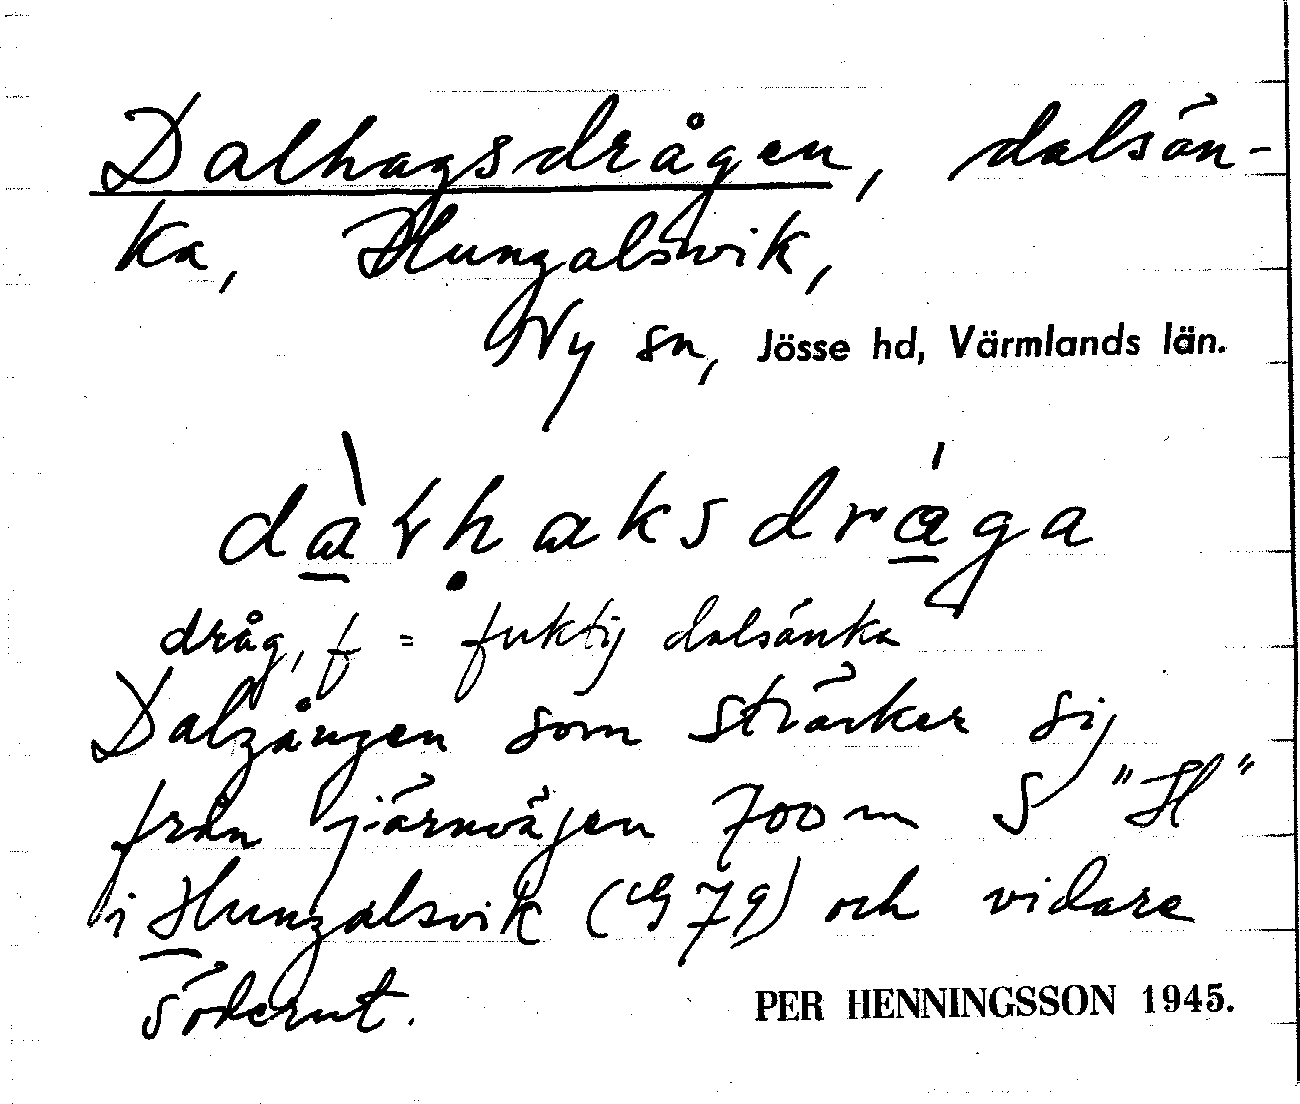 Dalhagsdrågen, dalsän-
ka, Hungalsvik,
Ny sn, Jösse hd, Värmlands län.
dråg, f = fuktig dalsänka
Dalgången som sträcker sig
från järnvägen 700 m S "H"
i Hungalsvik (cg 79) och vidare
söderut.
PER HENNINGSSON 1945.